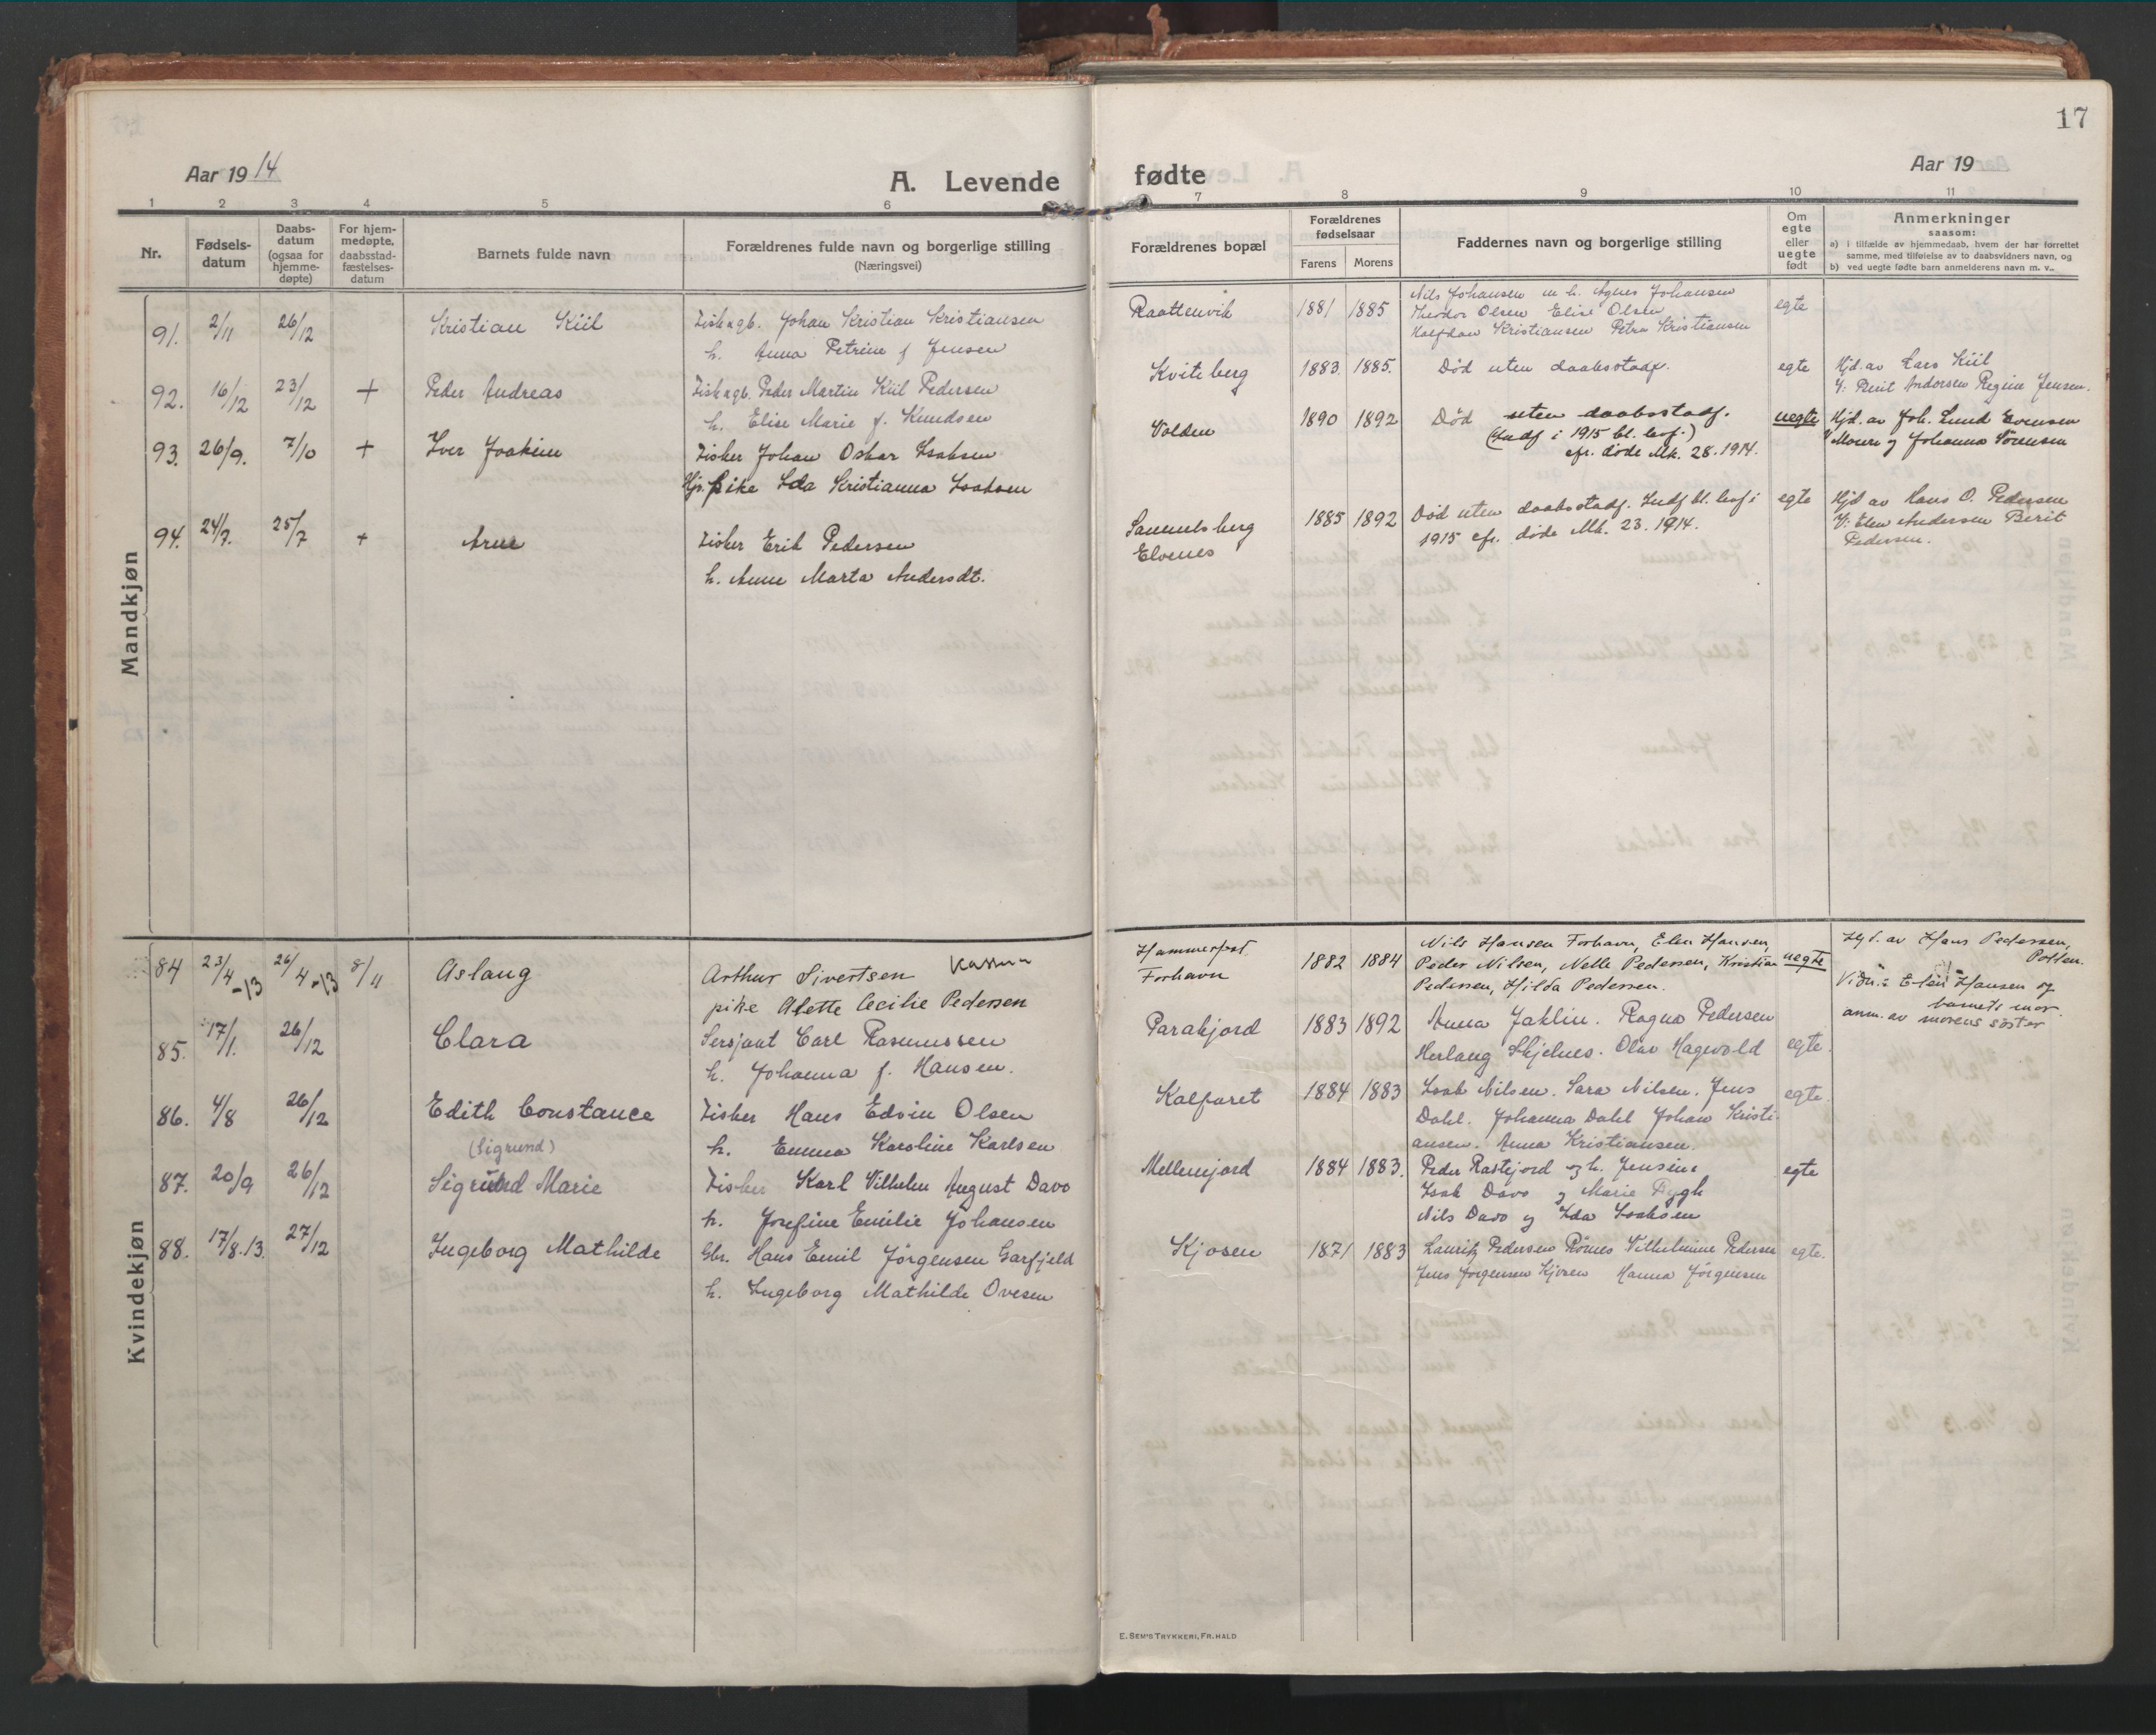 17
Aar 1914
A. Levende fødte
Aar 19
1 2 3 4 5 6 7 8 9 10 11
Nr.
Fødsels-
datum
Daabs-
datum
(ogsaa for
hjemme-
døpte)
For hjem-
medøpte,
daabsstad-
fæstelses-
datum
Barnets fulde navn
Forældrenes fulde navn og borgerlige stilling
(Næringsvei)
Forældrenes bopæl
Forældrenes
fødselsaar
Farens Morens
Faddernes navn og borgerlige stilling
Om
egte
eller
uegte
født
Anmerkninger
saasom:
a) i tilfælde av hjemmedaab, hvem der har forrettet
samme, med tilføielse av to daabsvidners navn, og
b) ved uegte fødte barn anmelderens navn m. v..
Mandkjøn
91. 2/11 26/12 Kristian Kiil
Fiskagb. Johan Kristian Kristiansen
h. Anna Petrine f Jensen
Raattenvik 1881 1885
Nils Johansen m h. Agnes Johansen
Theodor Olsen Elise Olsen
Halfdan Kristiansen Petra Kristiansen
egte
92. 16/12 23/12 + Peder Andreas
Fiskagb. Peder Martin Kiil Pedersen
h. Elise Marie f. Knudsen
Kviteberg 1883. 1885.
Død uten daabsstadf.
egte
Hjd. av Lars Kiil
V: Berit Andersen Regine Jensen.
93. 26/9. 7/10 + Iver Joakim
Fisker Johan Oskar Isaksen
Hjs. pike Ida Kristianna Isaksen
Volden 1890 1892
Død uten daabsstadf.
(Indf i 1915 bl. levf.)
cfr. døde Mk. 28. 1914.
uegte
Hjd. av Joh. Lund Evensen
V Moren og Johanna Sörensen
94. 24/7. 25/7 + Arne
Fisker Erik Pedersen
h. Anne Marta Andersdt.
Samuelsberg
Elvenes
1885 1892
Död uten daabsstadf. Indf bl. levf i
1915 cfr. døde Mk. 23. 1914.
egte
Hjd av Hans O. Pedersen
V: Elen Andersen Berit
Pedersen.
Kvindekjøn
84 23/4 -13 26/4 -13 8/11 Aslaug
Arthur Sivertsen
pike Alette Cecilie Pedersen
Hammerfest.
Forhavn
1882 1884
Nils Hansen Forhavn, Elen Hansen,
Peder Nilsen, Nelle Pedersen, Kristian
Pedersen, Hilda Pedersen.
uegte
Hjd. av Hans Pedersen,
Pollen.
Vidn.: Elen Hansen og
barnets mor.
anm. av morens söster
85. 17/1. 26/12 Clara
Sersjant Carl Rasmussen
h. Johanna f. Hansen.
Parakjord 1883 1892
Anna Jaklin. Ragna Pedersen
Herlaug Skjelnes. Olav Hagevold
egte.
86. 4/8 26/12 Edith Constance
Fisker Hans Edvin Olsen
h. Emma Karoline Karlsen
Kalfaret 1884 1883
Isak Nilsen. Sara Nilsen. Jens
Dahl. Johanna Dahl Johan Kristi-
ansen. Anna Kristiansen.
egte.
87. 20/9 26/12 (Sigrund)
Sigrund Marie
Fisker Karl Vilhelm August Davo
h. Josefine Emilie Johansen
Mellemjord 1884 1883.
Peder Rastejord og h. Jensine
Isak Davo og Marie Fygh
Nils Davo og Ida Isaksen
egte
88. 17/8.13. 27/12 Ingeborg Mathilde
Gbr. Hans Emil Jörgensen Garfjeld
h. Ingeborg Mathilde Ovesen
Kjosen 1871 1883
Lauritz Pedersen Römes Vilhelmine Pedersen
Jens Jörgensen Kjosen Hanna Jörgensen
egte.
E. SEM'S TRYKKERI, FR.HALD